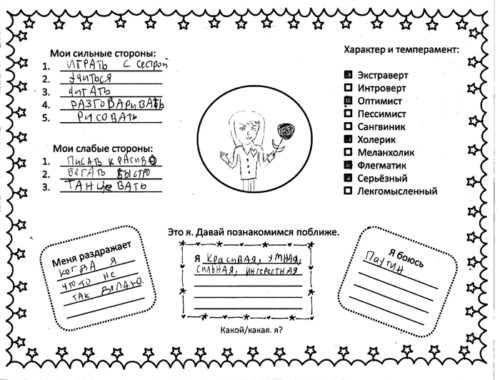 Мои сильные стороны:
1. ИГРАТЬ С СЕСТРОЙ
2. УЧИТЬСЯ
3. ЧИТАТЬ
4. РАЗГОВАРИВАТЬ
5. РИСОВАТЬ
Мои слабые стороны:
1. ПИСАТЬ КРАСИВО
2. БЕГАТЬ БЫСТРО
3. ТАНЦЕВАТЬ
Характер и темперамент:
Экстраверт
Интроверт
Оптимист
Пессимист
Сангвиник
Холерик
Меланхолик
Флегматик
Серьёзный
Легкомысленный
Это я. Давай познакомимся поближе.
Меня раздражает
КОГДА Я
ЧТО-ТО НЕ
ТАК ДЕЛАЮ
Я КРАСИВАЯ, УМНАЯ,
СИЛЬНАЯ, ИНТЕРЕСНАЯ
Какой/какая я?
Я боюсь
ПАУТИН